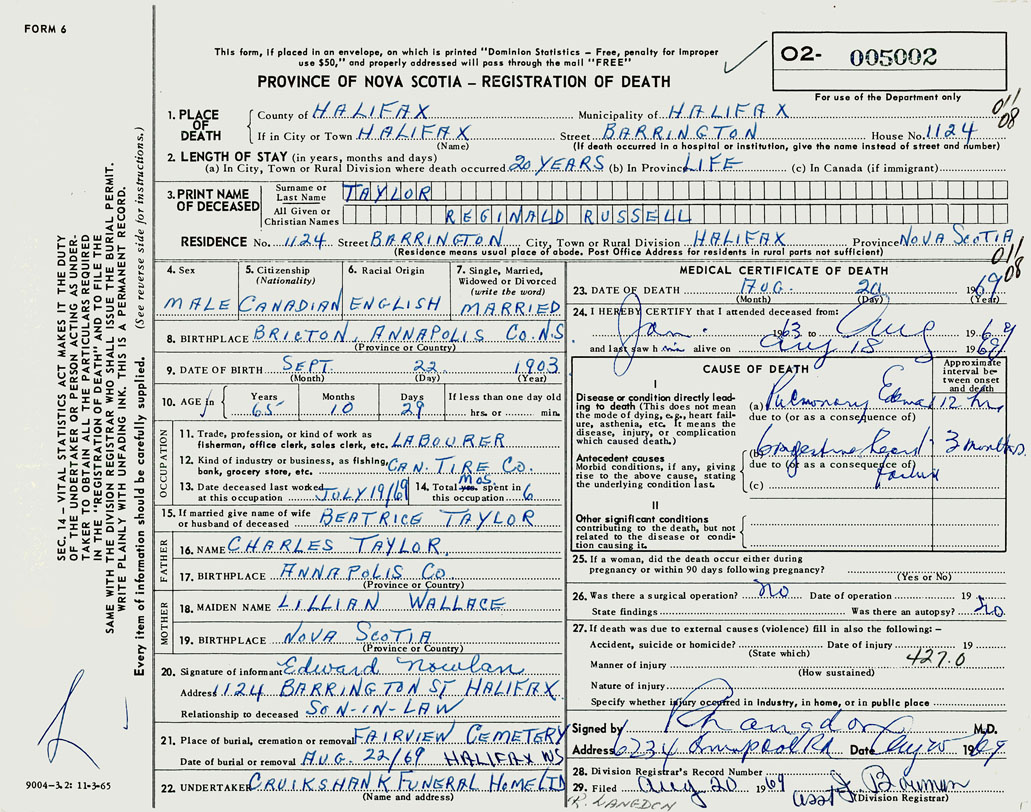 FORM 6
This form, if placed in an envelope, on which is printed "Dominion Statistics – Free, penalty for improper
use $50," and properly addressed will pass through the mail "FREE"
PROVINCE OF NOVA SCOTIA – REGISTRATION OF DEATH
O2- 005002
For use of the Department only
1. PLACE OF DEATH
County of HALIFAX Municipality of HALIFAX
If in City or Town HALIFAX Street BARRINGTON House No. 1124
(Name) (If death occurred in a hospital or institution, give the name instead of street and number)
2. LENGTH OF STAY (in years, months and days)
(a) In City, Town or Rural Division where death occurred 20 YEARS (b) In Province LIFE (c) In Canada (if immigrant)
3. PRINT NAME OF DECEASED
Surname or Last Name TAYLOR
All Given or Christian Names REGINALD RUSSELL
RESIDENCE No. 1124 Street BARRINGTON City, Town or Rural Division HALIFAX Province NOVA SCOTIA
(Residence means usual place of abode. Post Office Address for residents in rural parts not sufficient)
4. Sex
MALE
5. Citizenship
(Nationality)
CANADIAN
6. Racial Origin
ENGLISH
7. Single, Married,
Widowed or Divorced
(write the word)
MARRIED
8. BIRTHPLACE BRICTON, ANNAPOLIS CO. N.S
(Province or Country)
9. DATE OF BIRTH SEPT. 22 1903
(Month) (Day) (Year)
10. AGE in Years Months Days If less than one day old
65 10 29 hrs. or min.
OCCUPATION
11. Trade, profession, or kind of work as
fisherman, office clerk, sales clerk, etc. LABOURER
12. Kind of industry or business, as fishing,
bank, grocery store, etc. CAN. TIRE CO.
13. Date deceased last worked
at this occupation JULY 19/69
14. Total yrs. MOS. spent in
this occupation 6
15. If married give name of wife
or husband of deceased BEATRICE TAYLOR
FATHER
16. NAME CHARLES TAYLOR
17. BIRTHPLACE ANNAPOLIS CO
(Province or Country)
MOTHER
18. MAIDEN NAME LILLIAN WALLACE
19. BIRTHPLACE NOVA SCOTIA
(Province or Country)
20. Signature of informant Edward Nowlan
Address 1124 BARRINGTON ST HALIFAX
Relationship to deceased SON-IN-LAW
21. Place of burial, cremation or removal FAIRVIEW CEMETERY
Date of burial or removal AUG. 22/69 HALIFAX NS
22. UNDERTAKER CRUIKSHANK FUNERAL HOME LTD
(Name and address)
MEDICAL CERTIFICATE OF DEATH
23. DATE OF DEATH AUG. 20 1969
(Month) (Day) (Year)
24. I HEREBY CERTIFY that I attended deceased from:
Jan. 1963 to Aug 1969
and last saw him alive on Aug 18 1969
CAUSE OF DEATH
Approximate
interval be-
tween onset
and death
I
Disease or condition directly lead-
ing to death (This does not
mean the mode of dying, e.g., heart fail-
ure, asthenia, etc. It means the
disease, injury, or complication
which caused death.)
(a) Pulmonary Edema 12 hrs
due to (or as a consequence of)
Antecedent causes
Morbid conditions, if any, giving
rise to the above cause, stating
the underlying condition last.
(b) Congestive heart failure 3 months.
due to (or as a consequence of)
(c)
II
Other significant conditions
contributing to the death, but not
related to the disease or condi-
tion causing it.
25. If a woman, did the death occur either during
pregnancy or within 90 days following pregnancy?
(Yes or No)
26. Was there a surgical operation? no Date of operation 19
State findings Was there an autopsy? no
27. If death was due to external causes (violence) fill in also the following: –
Accident, suicide or homicide? Date of injury 19
(State which)
Manner of injury 427.0
(How sustained)
Nature of injury
Specify whether injury occurred in industry, in home, or in public place
Signed by R Langdon M.D.
Address 6234 Rd Date Aug 20 1969
28. Division Registrar's Record Number
29. Filed Aug 20 1969 asst J. Bowman
Division Registrar
R. LANGDON
SEC. 14 – VITAL STATISTICS ACT MAKES IT THE DUTY
OF THE UNDERTAKER OR PERSON ACTING AS UNDER-
TAKER TO OBTAIN ALL THE PARTICULARS REQUIRED
IN THE "REGISTRATION OF DEATH" AND TO FILE THE
SAME WITH THE DIVISION REGISTRAR WHO SHALL ISSUE THE BURIAL PERMIT.
WRITE PLAINLY WITH UNFADING INK. THIS IS A PERMANENT RECORD.
Every item of information should be carefully supplied. (See reverse side for instructions.)
9004-3.2: 11-3-65